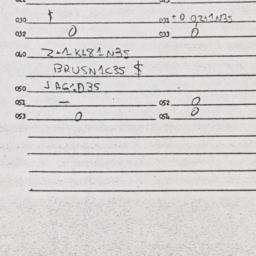 030 $ 031 + 0 0241N35
032 0 033 0
040 Z+1KL81N35
BRUSN1C35 $
050 JAG1D35
051 — 052 0
053 0 054 0